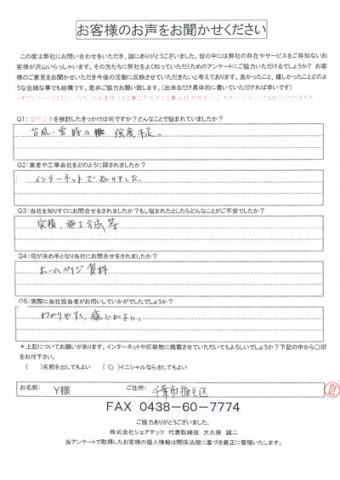 お客様のお声をお聞かせください
この度は弊社にお問い合わせをいただき、誠にありがとうございました。世の中には弊社の存在やサービスをご存知ないお
客様が沢山いらっしゃいます。その方たちに弊社をよく知っていただくためのアンケートにご協力いただけるでしょうか？ お客
様のご意見をお聞かせいただき今後の活動に反映させていただきたいと考えております。良かったこと、嬉しかったことどのよ
うな些細な事でも結構です。是非ご協力お願い致します。(出来るだけ具体的に書いていただければ幸いです)
Q1: を検討したきっかけは何ですか？どんなことで悩まれていましたか？
台風・雪時の 強度不足。
Q2: 業者や工事会社をどのように探されましたか？
インターネットで知りました。
Q3: 当社を知りすぐにお問合せをされましたか？もし悩まれたとしたらどんなことがご不安でしたか？
実積、施工方法等
Q4: 何が決め手となり当社にお問合せをされましたか？
ホームページ 資料
Q5: 実際に当社担当者がお伺いしていかがでしたでしょうか？
わかりやすく、感じがよい。
＊上記についてお願いがあります。インターネットや印刷物に掲載させていただいてもよろしいでしょうか？下記の中から〇印
をお付け下さい。
( )名前を出してもよい (〇)イニシャルなら出してもよい
お名前: Y様 ご住所: 千葉市 区
FAX 0438-60-7774
ご協力ありがとうございました。
株式会社シェアテック 代表取締役 大久保 誠二
当アンケートで取得したお客様の個人情報は関係法規に基づき厳正に管理いたします。